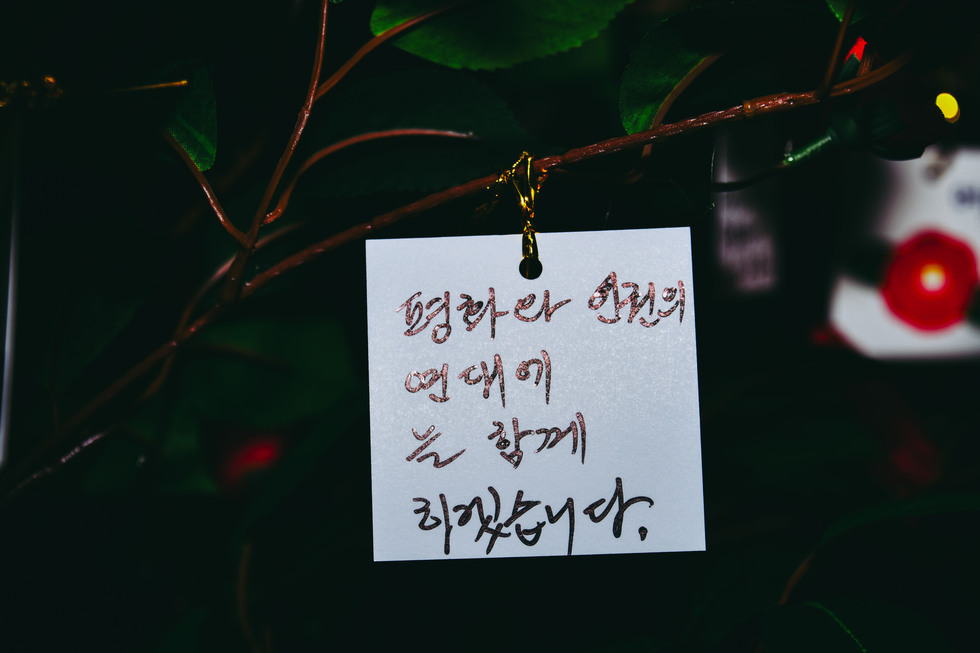 평화와 인권의
연대에
늘 함께
하겠습니다.